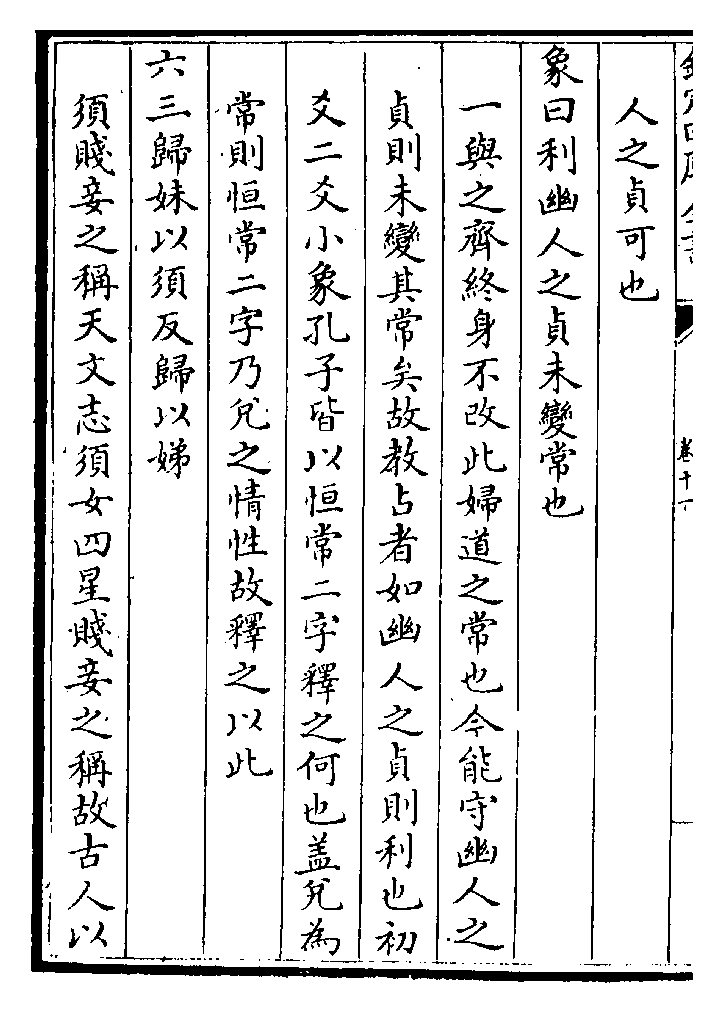 人之貞可也
象曰利幽人之貞未變常也
一與之齊終身不改此婦道之常也今能守幽人之
貞則未變其常矣故教占者如幽人之貞則利也初
爻二爻小象孔子皆以恒常二字釋之何也盖兌為
常則恒常二字乃兌之情性故釋之以此
六三歸妹以須反歸以娣
須賤妾之稱天文志須女四星賤妾之稱故古人以